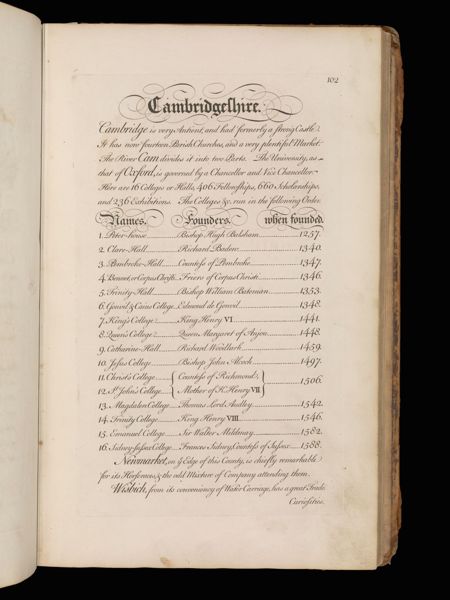 102
Cambridgeshire.
Cambridge is very Antient, and had formerly a strong Castle.
It has now fourteen Parish Churches, and a very plentiful Market.
The River Cam divides it into two Parts. The University, as
that of Oxford, is governed by a Chancellor and Vice Chancellor.
Here are 16 Colleges or Halls, 406 Fellowships, 660 Scholarships,
and 236 Exhibitions. The Colleges &c. run in the following Order.
Names. Founders. when founded.
1. Peter-house Bishop Hugh Balsham 1257.
2. Clare-Hall Richard Badew 1340.
3. Pembroke-Hall Countess of Pembroke 1347.
4. Bennet, or Corpus Christi Friers of Corpus Christi 1346.
5. Trinity-Hall Bishop William Bateman 1353.
6. Gonvil & Caius College Edmond de Gonvil 1348.
7. King's College King Henry VI 1441.
8. Queen's College Queen Margaret of Anjou 1448.
9. Catharine-Hall Richard Woodlark 1459.
10. Jesus College Bishop John Alcock 1497.
11. Christ's College { Countess of Richmond, } 1506.
12. St. John's College { Mother of K. Henry VII }
13. Magdalen College Thomas Lord Audley 1542.
14. Trinity College King Henry VIII 1546.
15. Emanuel College Sir Walter Mildmay 1582.
16. Sidney-Sussex College Frances Sidney, Countess of Sussex 1588.
Newmarket, on ye Edge of this County, is chiefly remarkable
for its Horseraces, & the odd Mixture of Company attending them.
Wisbich, from its conveniency of Water Carriage, has a great Trade.
Curiosities.